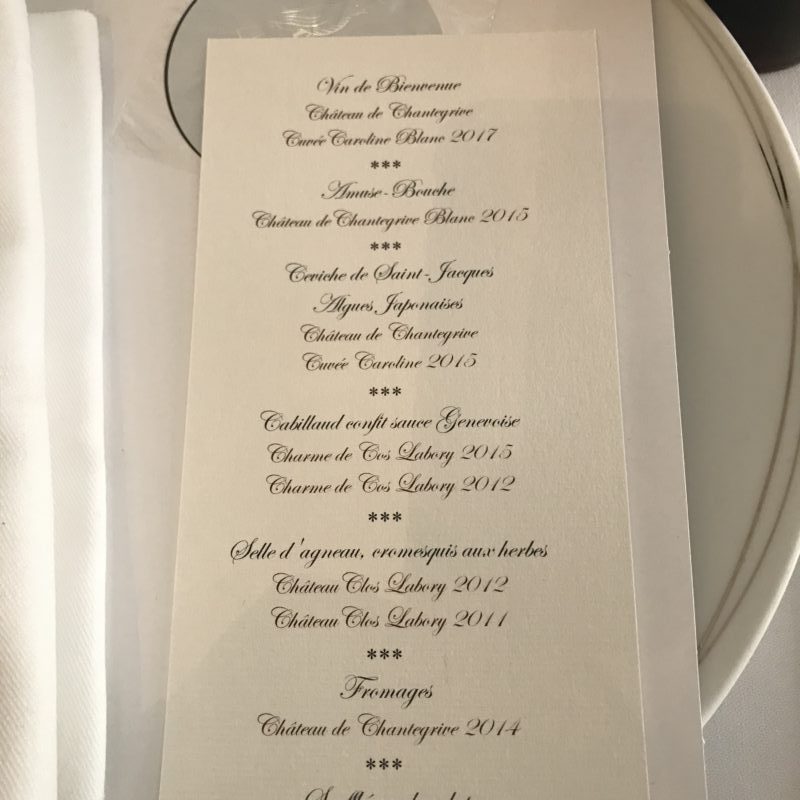 Vin de Bienvenue
Château de Chantegrive
Cuvée Caroline Blanc 2017
***
Amuse-Bouche
Château de Chantegrive Blanc 2015
***
Ceviche de Saint-Jacques
Algues Japonaises
Château de Chantegrive
Cuvée Caroline 2015
***
Cabillaud confit sauce Genevoise
Charme de Cos Labory 2015
Charme de Cos Labory 2012
***
Selle d'agneau, cromesquis aux herbes
Château Clos Labory 2012
Château Clos Labory 2011
***
Fromages
Château de Chantegrive 2014
***